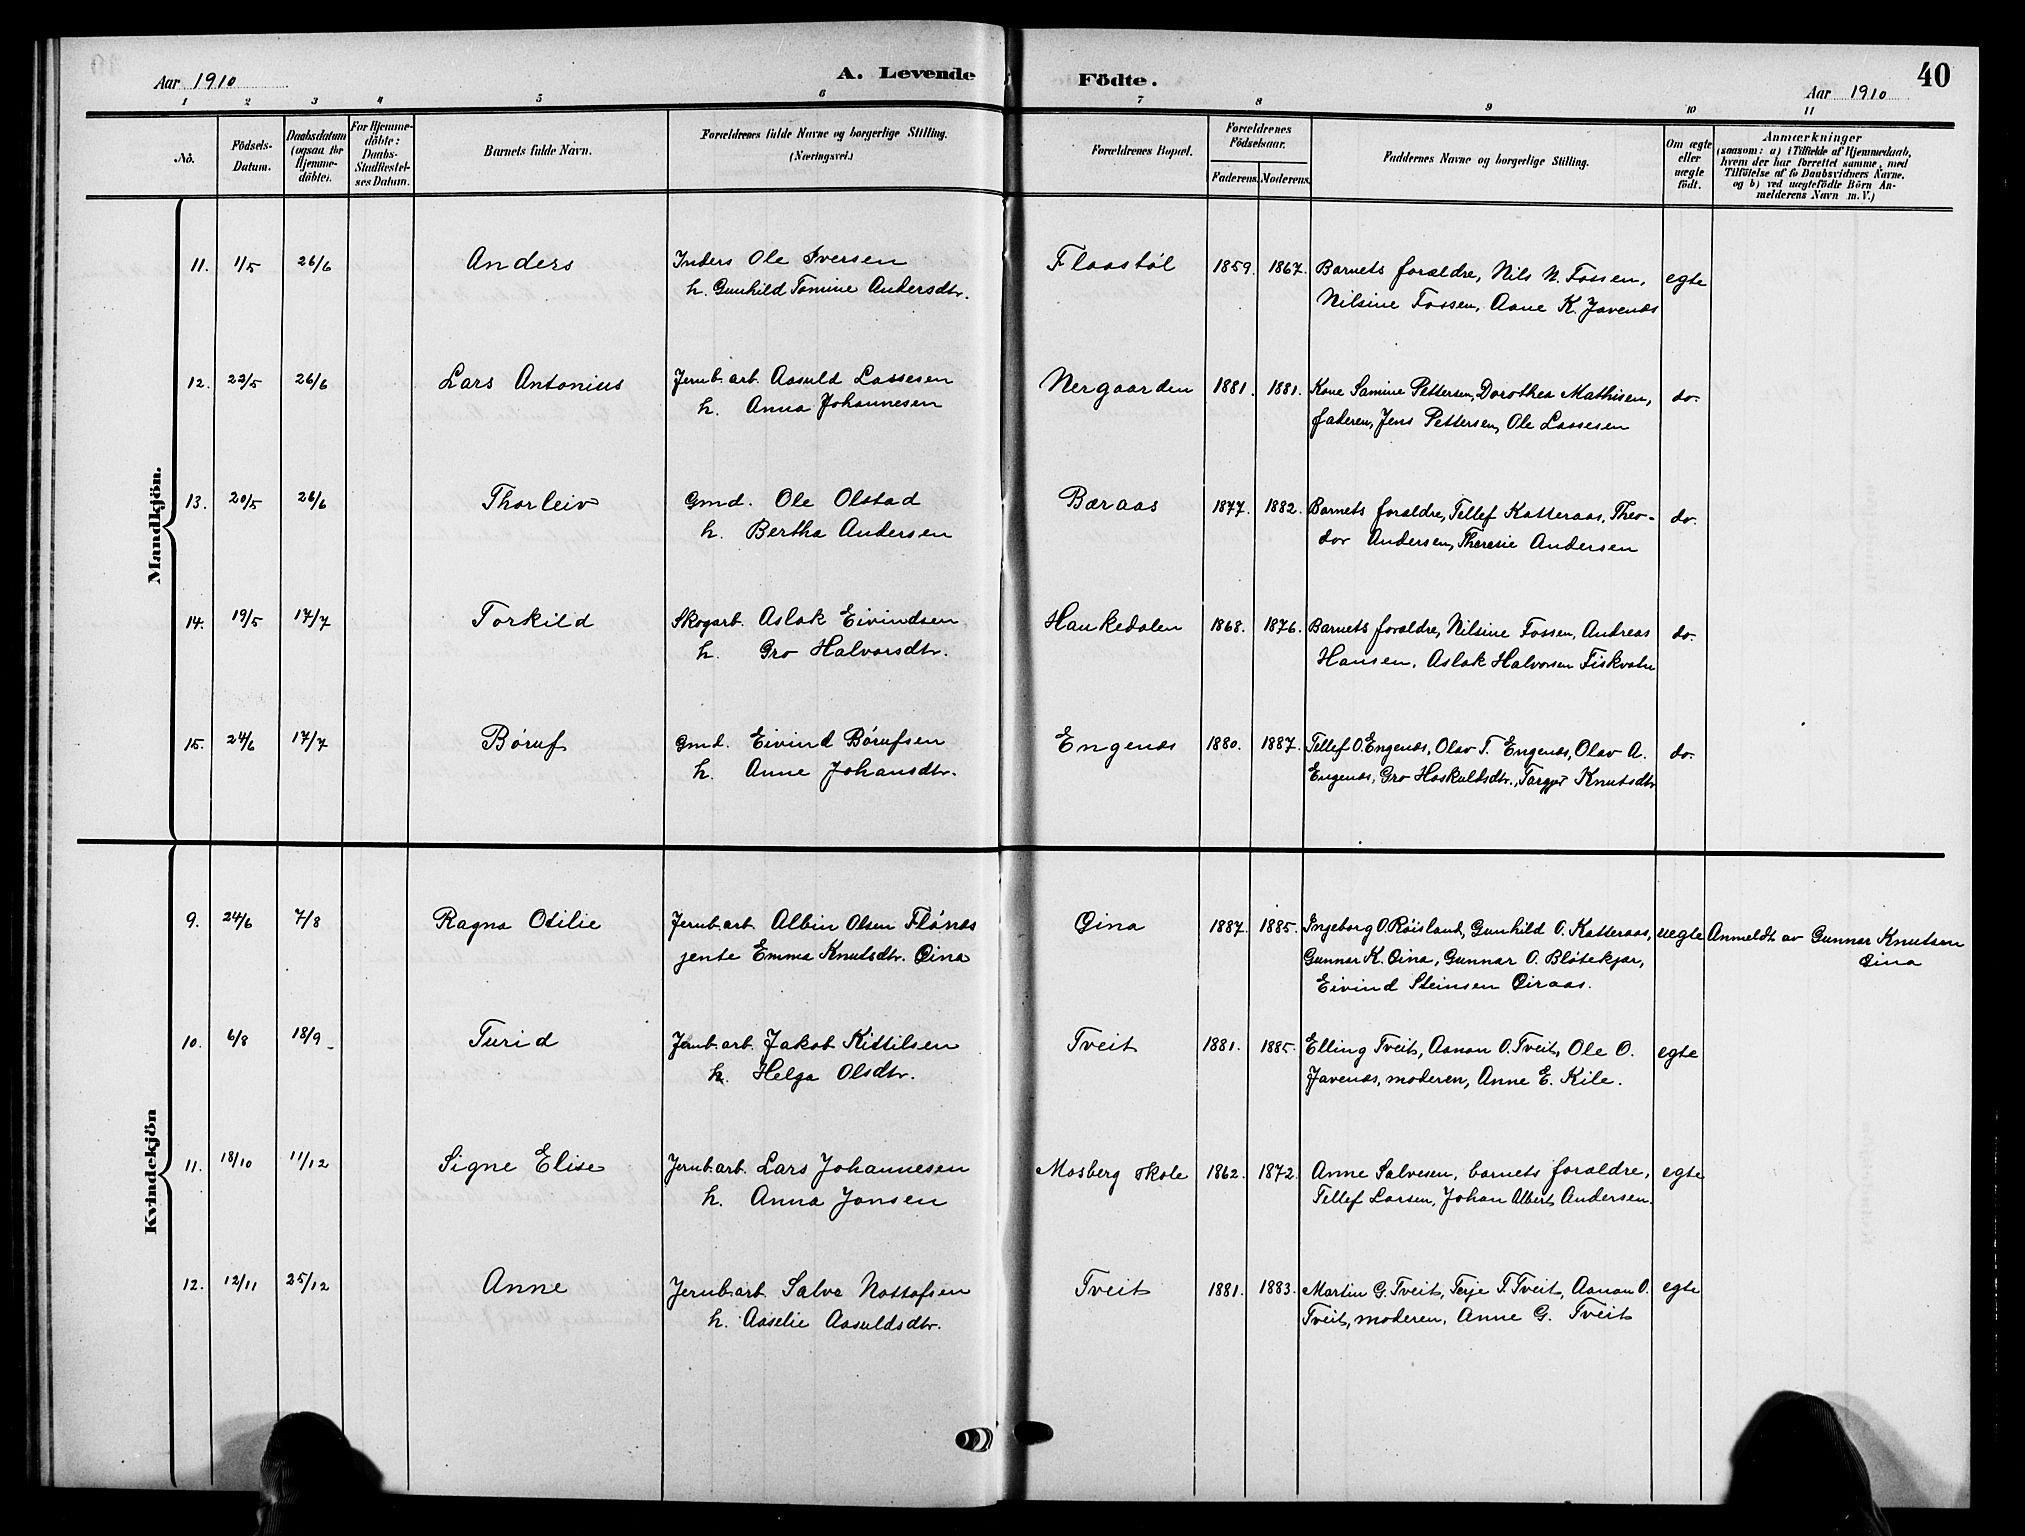 Aar 1910
A. Levende Födte.
40
Aar 1910
1 2 3 4 5 6 7 8 9 10 11
No.
Födsels-Datum.
Daabsdatum (ogsaa for Hjemmedöbte).
For Hjemmedöbte: Daabs-Stadfestelses Datum.
Barnets fulde Navn.
Forældrenes fulde Navne og borgerlige Stilling. (Næringsvei.)
Forældrenes Bopæl.
Forældrenes Födselsaar.
Faderens. Moderens.
Faddernes Navne og borgerlige Stilling.
Om ægte eller uægte födt.
Anmærkninger
(saasom: a) i Tilfælde af Hjemmedaab,
hvem der har forrettet samme, med
Tilföielse af to Daabsvidners Navne.
og b) ved uægtefödte Börn An-
melderens Navn m.V.)
Mandkjön.
11. 1/5 26/6 Anders Inders Ole Iversen Flaastøl 1859. 1867. Barnets foraldre, Nils N. Fossen, egte
h. Gunhild Tomine Andersdtr. Nilsine Fossen, Aane K. Javenæs
12. 22/5 26/6 Lars Antonius Jernb.arb. Aasuld Lassesen Nergaarden 1881. 1881. Kone Samine Pettersen, Dorothea Mathisen, do.
h. Anna Johannesen faderen, Jens Pettersen, Ole Lassesen
13. 20/5 26/6 Thorleiv Gmd. Ole Olstad Bæraas 1877. 1882. Barnets foraldre, Tellef Katteraas, Theo- do.
h. Bertha Andersen dor Andersen, Theresie Andersen
14. 19/5 17/7 Torkild Skogarb. Aslak Eivindsen Haukedalen 1868. 1876. Barnets foraldre, Nilsine Fossen, Andreas do.
h. Gro Halvorsdtr. Hansen, Aslak Halvorsen Fiskvatn
15. 24/6 17/7 Børuf Gmd. Eivind Børufsen Engenæs 1880. 1887. Tellef O. Engenæs, Olav T. Engenæs, Olav A. do.
h. Anne Johansdtr. Engenæs, Gro Haskuldsdtr., Torgjer Knutsdtr
Kvindekjön
9. 24/6 7/8 Ragna Otilie Jernb.arb. Albin Olsen Flånæs Oina 1887. 1885. Ingeborg O. Røisland, Gunhild O. Katteraas, uegte Anmeldt av Gunnar Knutsen
jente Emma Knutsdtr. Oina Gunnar K. Oina, Gunnar O. Bløtekjær, Oina
Eivind Steinsen Oiraas.
10. 6/8 18/9 Turid Jernb.arb. Jakob Kittilsen Tveit 1881. 1885. Elling Tveit, Aanon O. Tveit, Ole O. egte
h. Helga Olsdtr. Javenæs, moderen, Anne E. Kile.
11. 18/10 11/12 Signe Elise Jernb.arb. Lars Johannesen Mosberg skole 1862. 1872. Anne Salvesen, barnets foraldre, egte
h. Anna Jansen Tellef Larsen, Johan Albert Andersen.
12. 12/11 25/12 Anne Jernb.arb. Salve Nottofsen Tveit 1881. 1883. Martin G. Tveit, Terje T. Tveit, Aanon O. egte
h. Aaselie Aasuldsdtr. Tveit, moderen, Anne G. Tveit